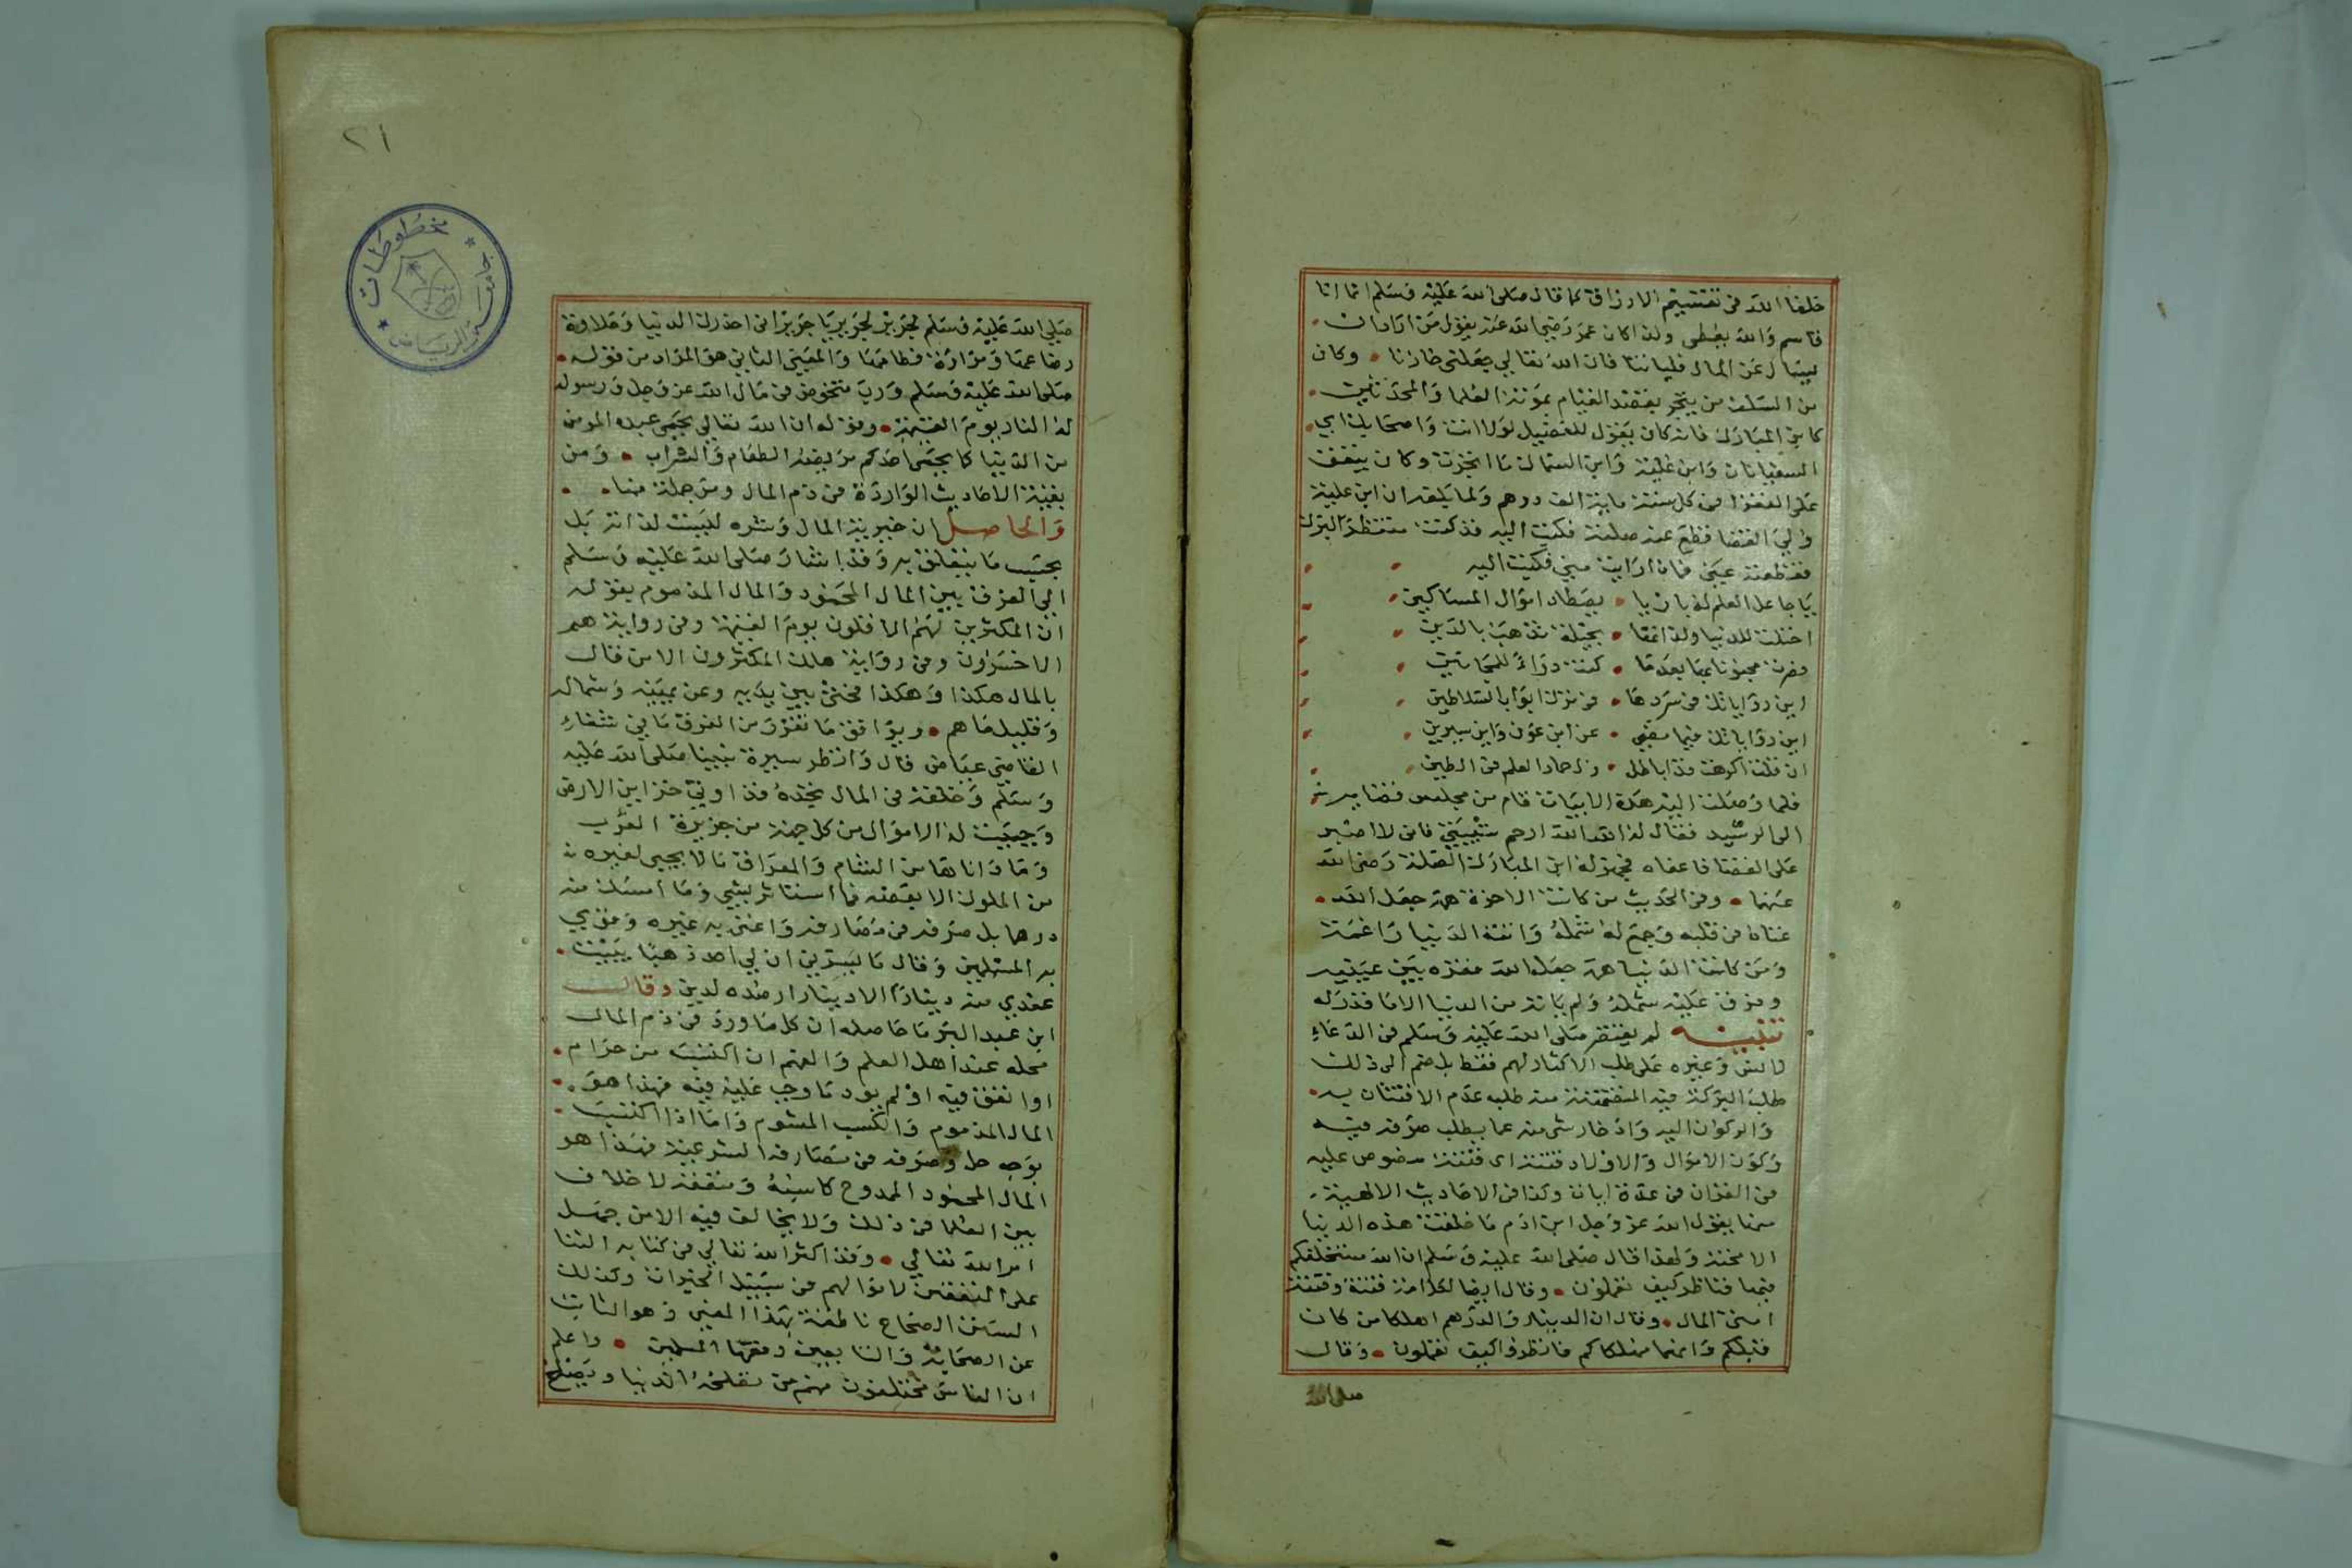 خلفا الله في تقسيم الارزاق كما قال صلى الله عليه وسلم انما انا
قاسم والله يعطي ولذا كان عمر رضي الله عنه يقول من اراد ان
يسال عن المال فلياتنا فان الله تعالى جعلني خازنا وكان
من السلف من يتجر بقصد القيام بمؤنة العلما والمحدثين
كابن المبارك فانه كان يقول للفضيل لولا انت واصحابك اي
السفيانان وابن علية وابن السماك ما اتجرت وكان ينفق
على الفقرا في كل سنة ماية الف درهم ولما بلغه ان ابن علية
ولي القضا قطع عنه صلته فكتب اليه قد كنت منتظر البرك
فقطعته عني فماذا رايت مني فكتب اليه
يا جاعل العلم له بازيا يصطاد اموال المساكين
احتلت للدنيا ولذاتها بحيلة تذهب بالدين
وصرت مجنونا بها بعدما كنت دواء للمجانين
اين رواياتك في سردها في ترك ابواب السلاطين
اين رواياتك فيما مضى عن ابن عون وابن سيرين
ان قلت اكرهت فذا باطل زل حمار العلم في الطين
فلما وصلت اليه هذه الابيات قام من مجلس قضايه
الى الرشيد فقال له الله الله ارحم شيبتي فاني لا اصبر
على القضا فاعفاه فجهز له ابن المبارك الصلة رضي الله
عنهما وفي الحديث من كانت الاخرة همه جعل الله
غناه في قلبه وجمع له شمله واتته الدنيا راغمة
ومن كانت الدنيا همه جعل الله فقره بين عينيه
وفرق عليه شمله ولم ياته من الدنيا الا ما قدر له
تنبيه لم يقتصر صلى الله عليه وسلم في الدعاء
لانس وغيره على طلب الاكثار لهم فقط بل ضم الى ذلك
طلب البركة فيه المتضمنة منه طلبه عدم الافتتان به
والركون اليه وادخار شي منه عما يطلب صرفه فيه
وكون الاموال والاولاد فتنة اي فتنة منصوص عليه
في القران في عدة ايات وكذا في الاحاديث الالهية
منها يقول الله عز وجل ابن ادم ما خلقت هذه الدنيا
الا محنة ولهذا قال صلى الله عليه وسلم ان الله مستخلفكم
فيها فناظر كيف تعملون وقال ايضا لكل امة فتنة وفتنة
امتي المال وقال ان الدينار والدرهم اهلكا من كان
قبلكم وانهما مهلكاكم فانظروا كيف تعملون وقال
صلى الله
٢١
مخطوطات
جامعة الرياض
صلى الله عليه وسلم لجرير يا جرير اني احذرك الدنيا وحلاوة
رضاعها ومرارة فطامها والمعنى الثاني هو المراد من قوله
صلى الله عليه وسلم ورب متخوض في مال الله عز وجل ورسوله
له النار يوم القيمة وقوله ان الله تعالى يحمي عبده المومن
من الدنيا كما يحمي احدكم مريضه الطعام والشراب ومن
بقية الاحاديث الواردة في ذم المال وفي جملة منها
والحاصل ان خيرية المال وشره ليست لذاته بل
بحسب ما يتعلق به وقد اشار صلى الله عليه وسلم
الى الفرق بين المال المحمود والمال المذموم بقوله
ان المكثرين لهم الاقلون يوم القيمة وفي رواية هم
الاخسرون وفي رواية هلك المكثرون الا من قال
بالمال هكذا وهكذا فحثى بين يديه وعن يمينه وشماله
وقليل ما هم ويوافق ما تقرر من الفرق ما في شفاء
القاضي عياض قال وانظر سيرة نبينا صلى الله عليه
وسلم وخلقه في المال تجده قد اوتي خزاين الارض
وجبيت له الاموال من كل جهة من جزيرة العرب
وما داناها من الشام والعراق ما لا يجبى لغيره
من الملوك الا بعضه فما استاثر بشي وما امسك منه
درهما بل صرفه في مصارفه واغنى به غيره وقوى
به المسلمين وقال ما يسرني ان لي احد ذهبا يبيت
عندي منه دينارا الا دينار ارصده لدين وقال
ابن عبد البر ما حاصله ان كل ما ورد في ذم المال
محله عند اهل العلم والفهم ان اكتسب من حرام
او انفق فيه او لم يود ما وجب عليه فيه فهذا هو
المال المذموم والكسب المشوم واما اذا اكتسب
بوجه حل وصرفه في مصارفه الشرعية فهذا هو
المال المحمود الممدوح كاسبه ومنفقه لا خلاف
بين العلما في ذلك ولا يخالف فيه الا من جهل
امر الله تعالى وقد اكثر الله تعالى في كتابه الثنا
على المنفقين لاموالهم في سبيل الخيرات وكذلك
السنن الصحاح ناطقة بهذا المعنى وهو الثابت
عن الصحابة والتابعين وفقها المسلمين واعلم
ان الناس مختلفون منهم من تصلحه الدنيا ويصلح